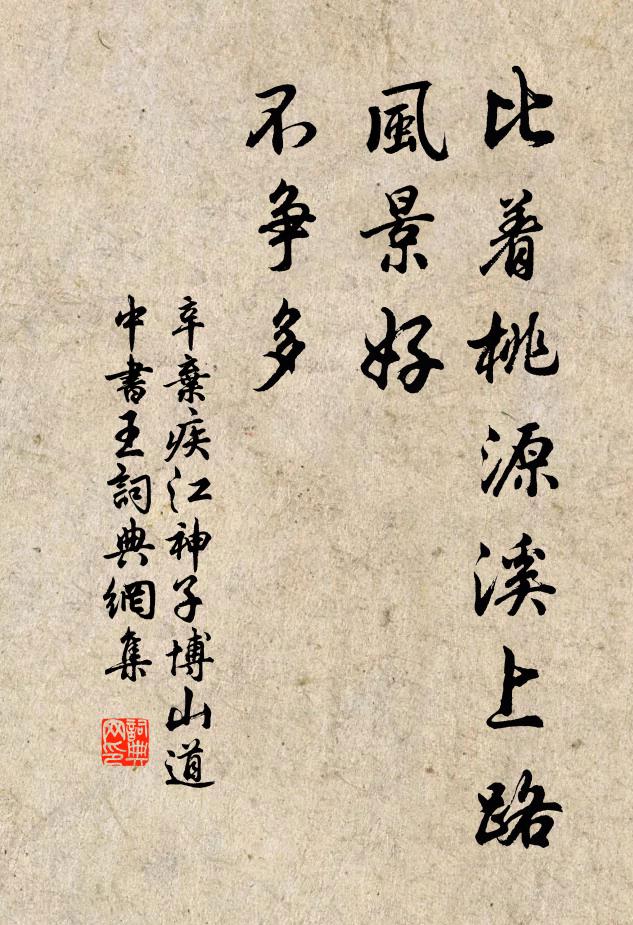 比着桃源溪上路
風景好
不争多
辛棄疾江神子博山道
中書王詞典網集
詞典網印